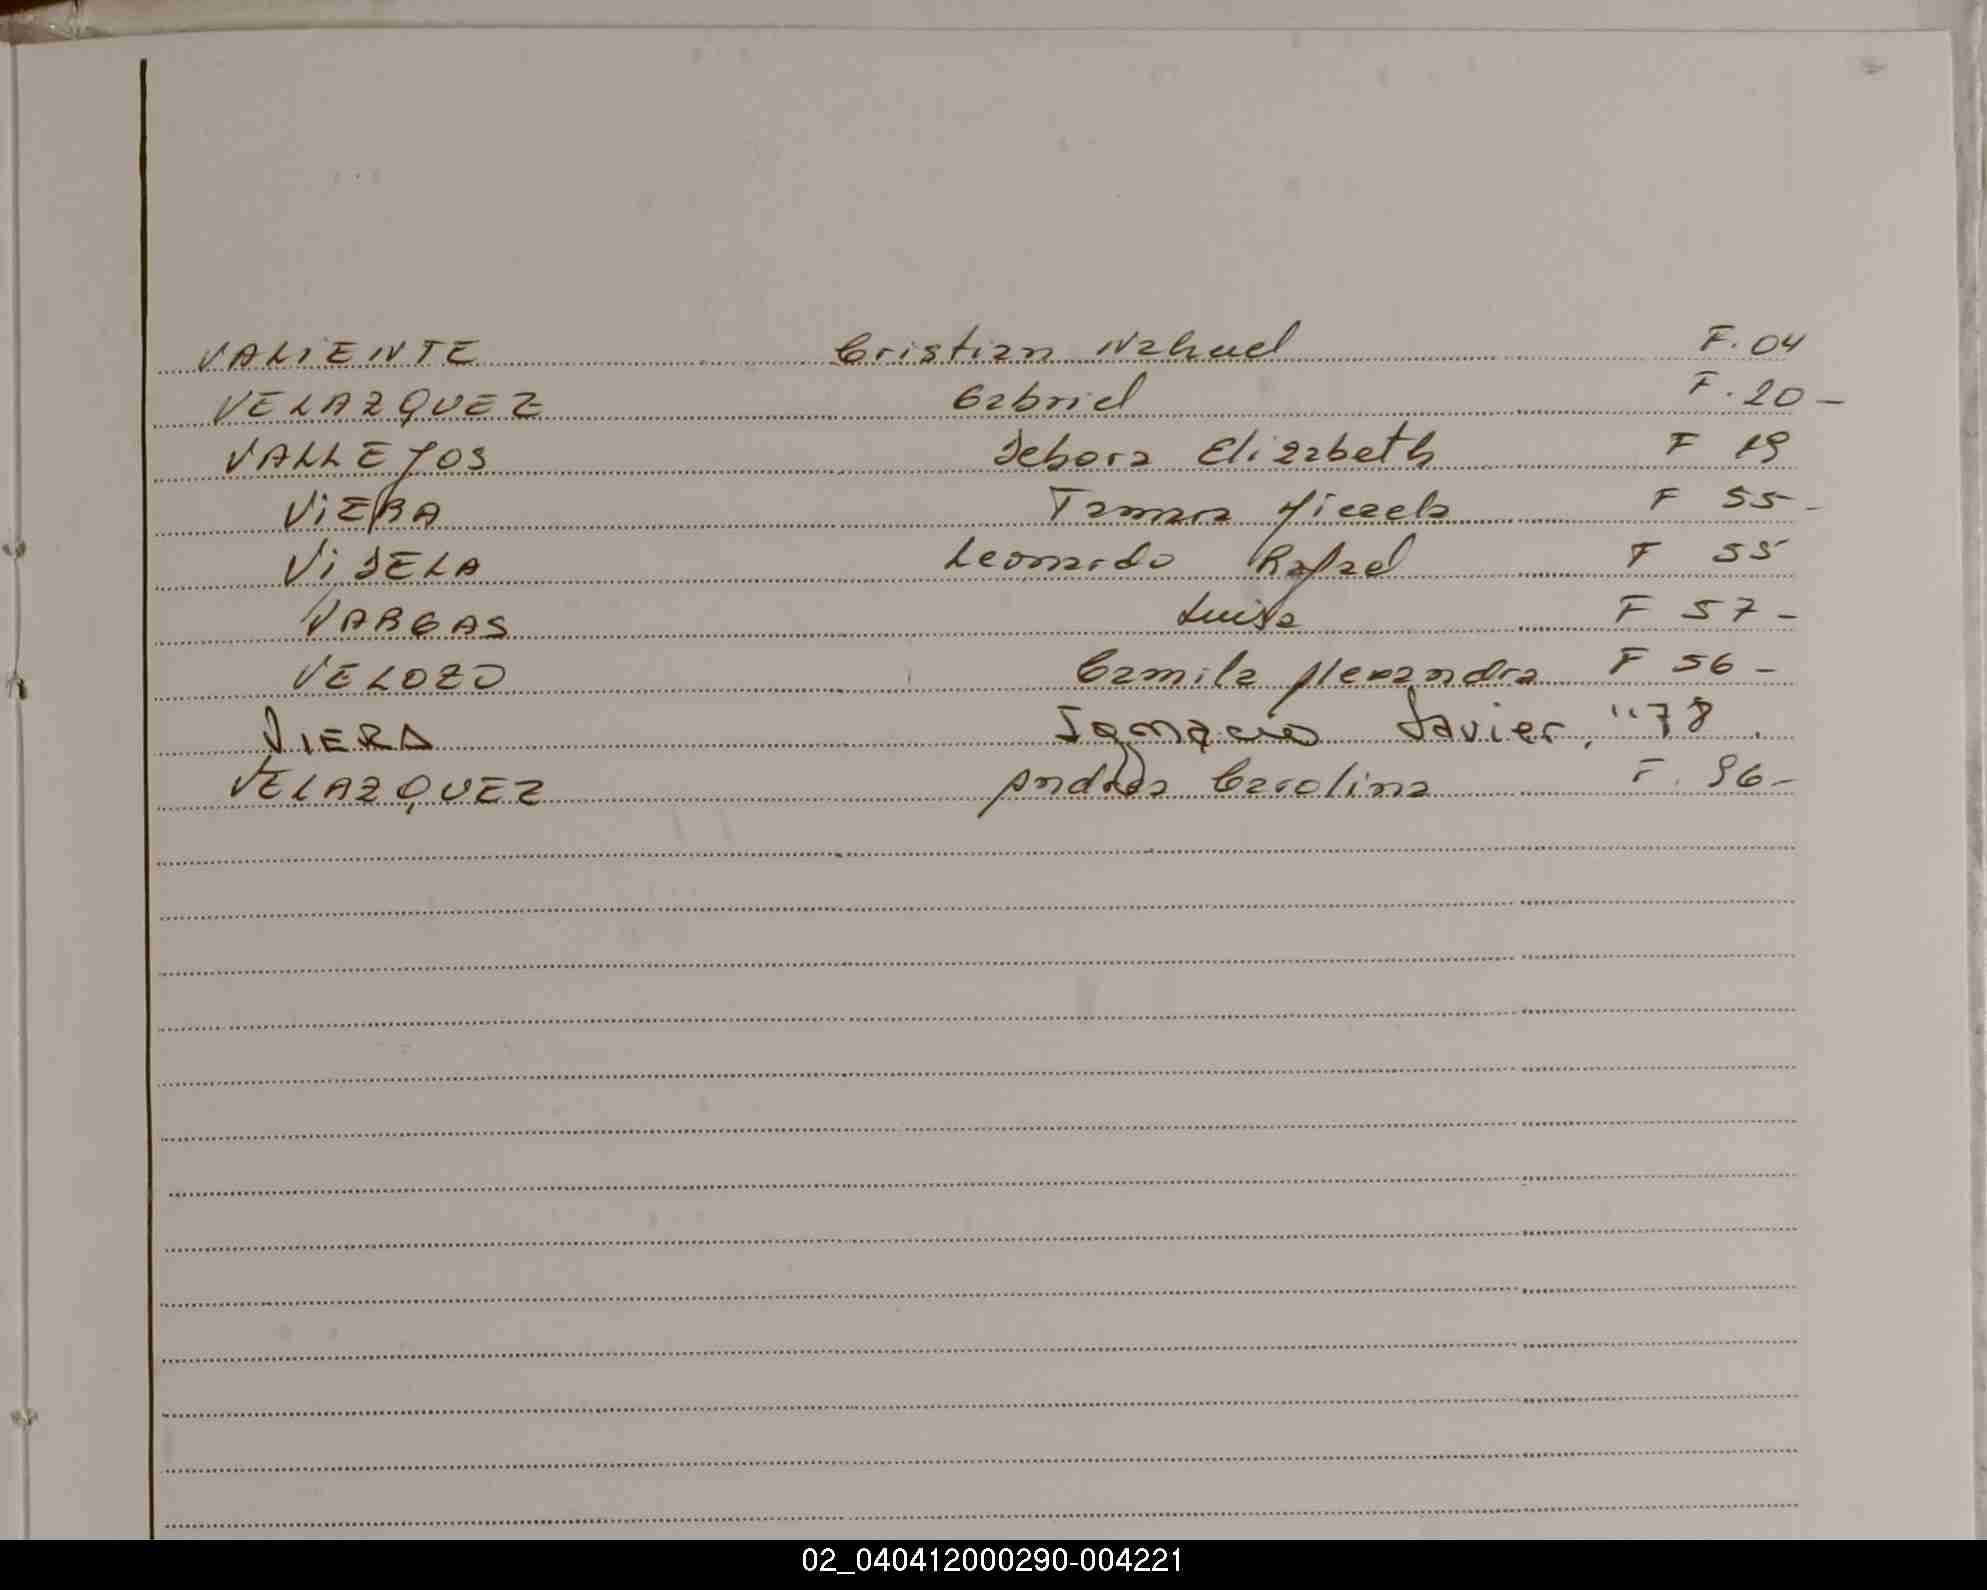 VALIENTE Cristian Nahuel F. 04
VELAZQUEZ Gabriel F. 20-
VALLEJOS Debora Elizabeth F 19
VIERA Tamara Micaela F 55-
VIDELA Leonardo Rafael F 55
VARGAS Luisa F 57-
VELOZO Camila Alexandra F 56-
VIERA Ignacio Javier. "78.
VELAZQUEZ Andrea Carolina F. 96-
02_040412000290-004221